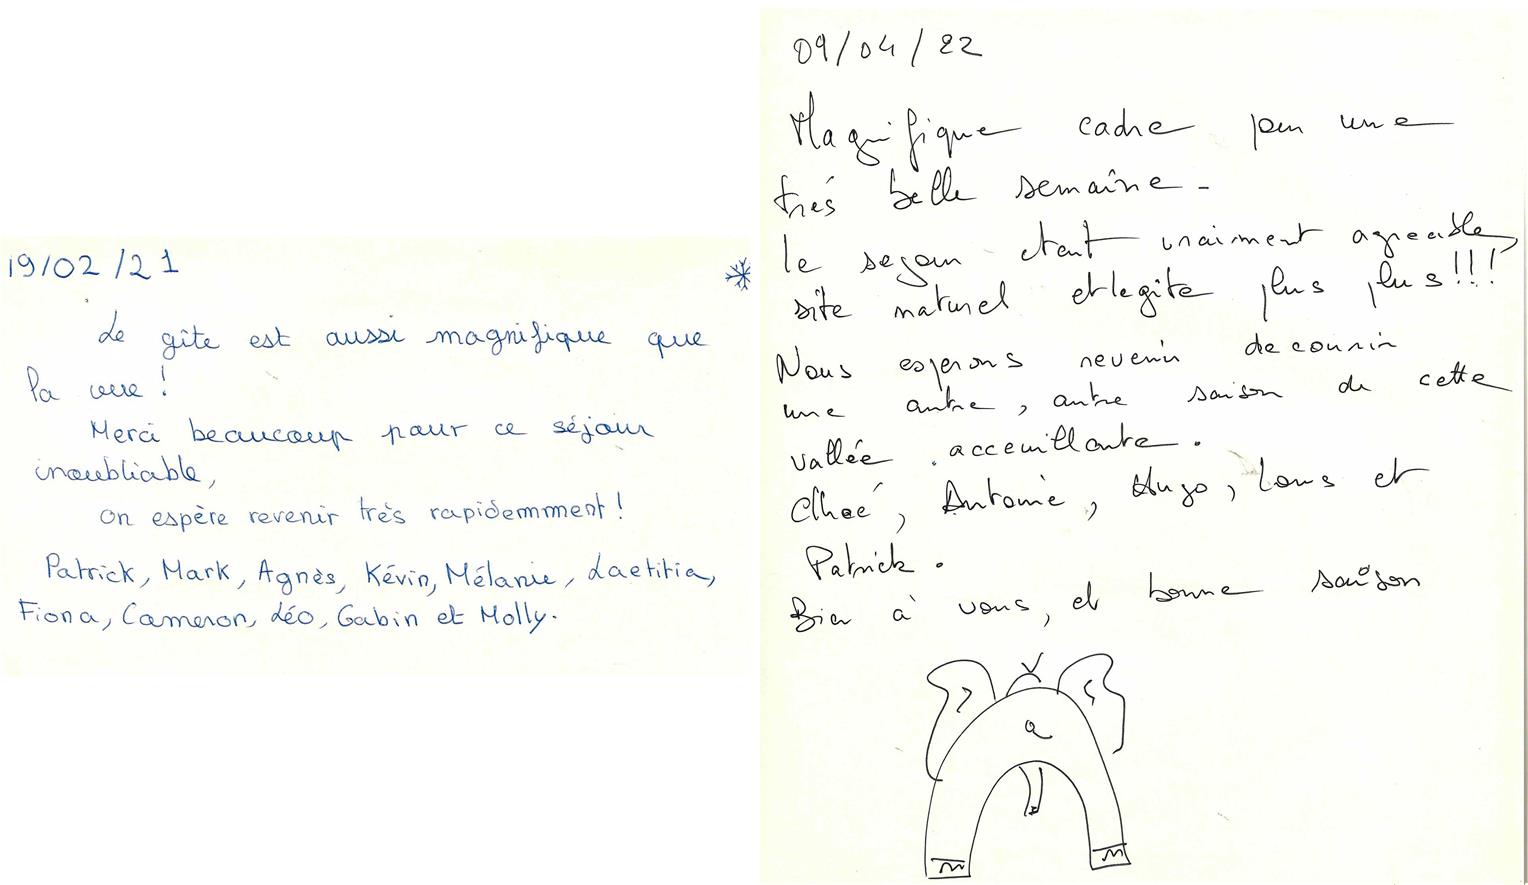 19/02/21
Le gîte est aussi magnifique que
la vue !
Merci beaucoup pour ce séjour
inoubliable,
On espère revenir très rapidemment !
Patrick, Mark, Agnès, Kévin, Mélanie, Laetitia,
Fiona, Cameron, Léo, Gabin et Molly.
09/04/22
Magnifique cadre pour une
trés belle semaîne.
le sejour étant vraiment agreable,
site naturel et le gite plus plus!!!
Nous esperons revenir decouvrir
une autre, autre saison de cette
vallée acceuillante.
Chloé, Antoine, Hugo, Louis et
Patrick.
Bien à vous, et bonne saison